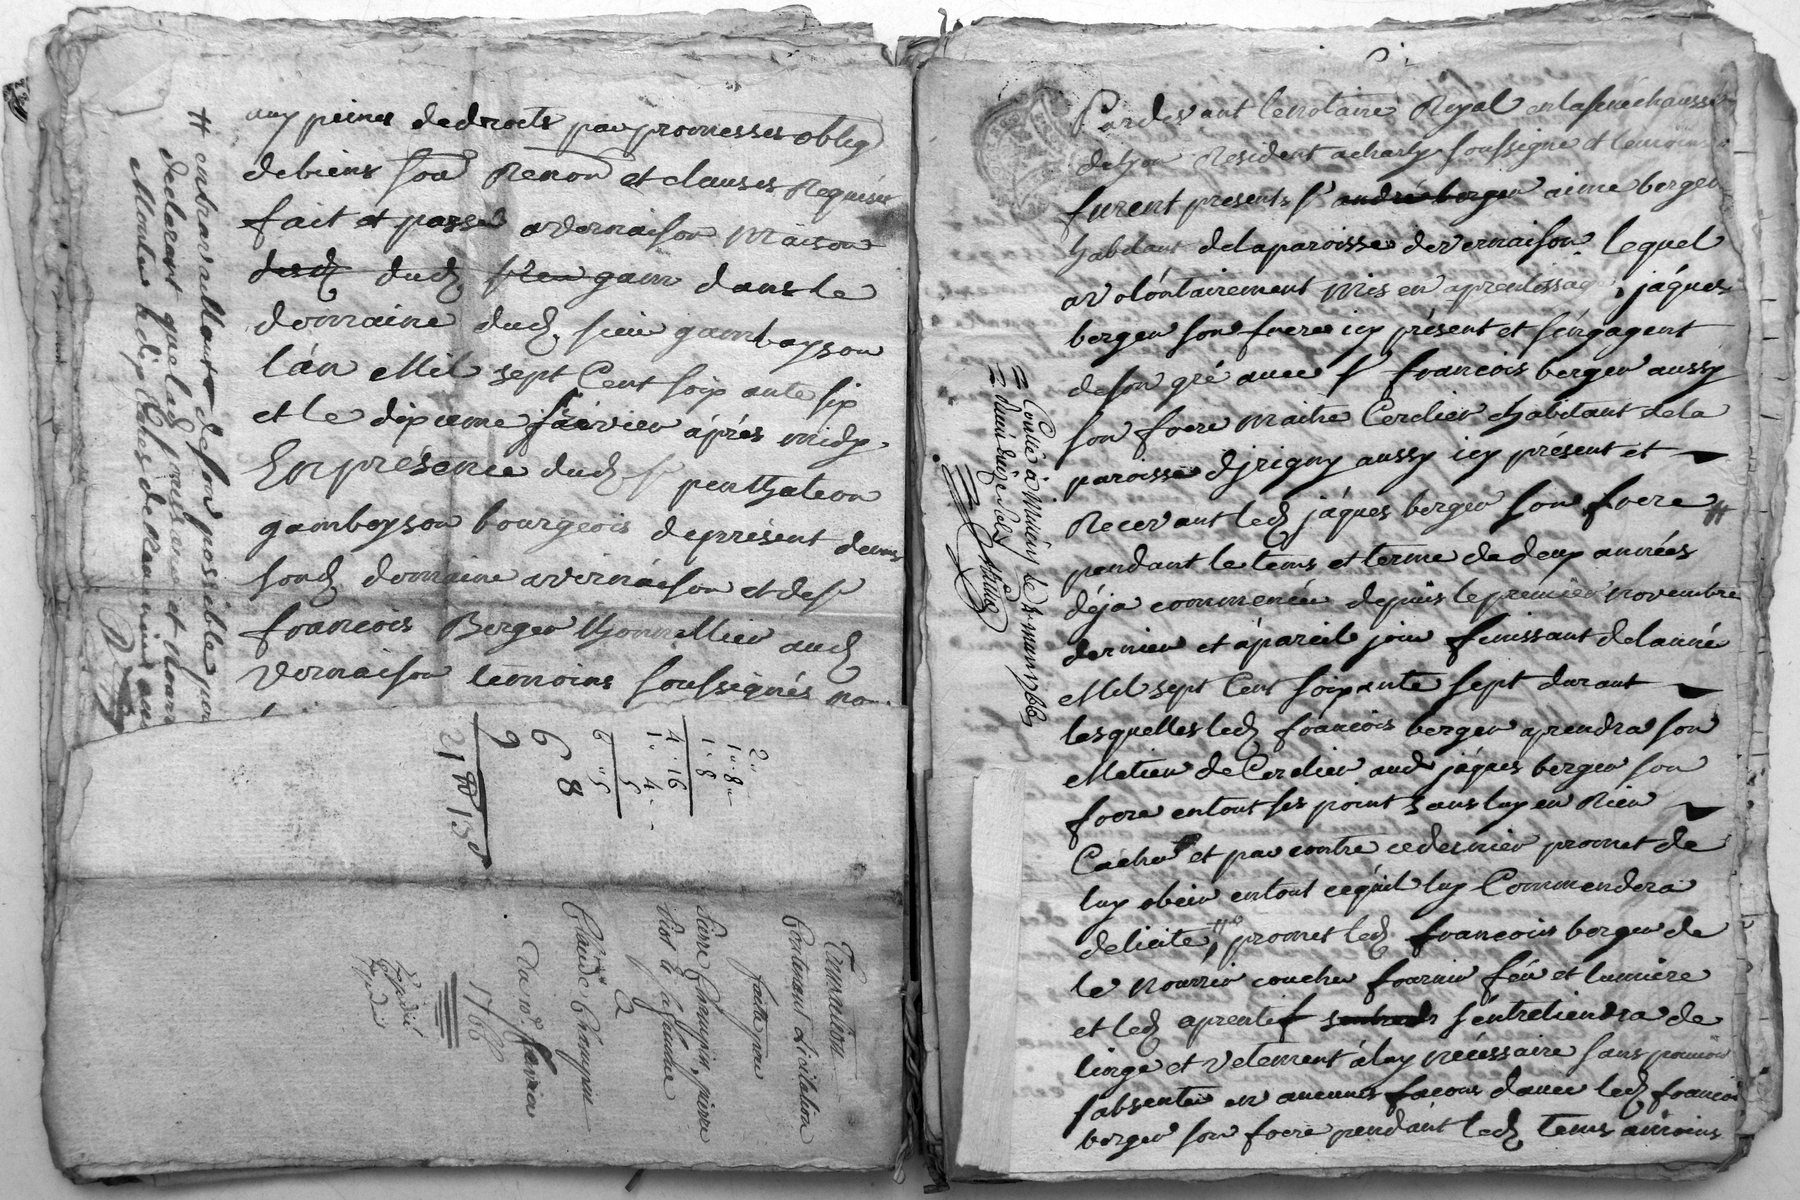 aux peines de droits par promesses oblig
de biens son Renon et clauses Requises
fait et passé a vernaison Maison
dud dud sieur gam dans le
domaine dud. sieur gamboyson
lán Mil sept Cent soixante six
et le dixieme février áprés midy.
En présence dud sr penthaleon
gamboyson bourgeois de présent dans
sond domaine a vernáison et de sr
francois Berger thonnellier aud
vernaison temoins soussignés
# en travaillant de son possible pour
declarant que led
Monter a dix livres
2"
1"8"
1"8
4"16
1"4"
5
6"5
6 8
9
21 15
Convention
Contenant Licitation
faitte par
pierre Champin, pierre
Claude Champin
Du 10e. fevrier
1766
Expedié
Expedié
Par devant le notaire Royal en la sénéchaussé
de lyon Resident a charly soussigné et temoins
furent presents sr andré berger aimé berger
habitant de la paroisse de vernaison lequel
a volóntairement mis en aprentissage jáques
berger son frere icy présent et s'éngagent
de son gré avec sr francois berger aussy
son frere maitre Cordier habitant de la
paroisse djrigny aussy icy présent et
Recevant led jáques berger son frere #
pendant le tems et terme de deux années
déja commencée depuis le premier novembre
dernier et á páreil jour finissant de lannée
Mil sept Cent soixante sept durant
lesquelles led francois berger aprendra son
Metier de Cordier aud jáques berger son
frere en tout ses point sans luy en Rien
Cácher et par contre ce dernier promet de
luy obeir en tout ce qúil luy Commendera
de licite, promet led francois berger de
le nourrir coucher fournir féu et lumiere
et led aprentif s'entretiendra de
linge et vetement á luy nécessaire sans pouvoir
sabsenter en aucunes facons daver led francois
berger son frere pendánt led tems a moins
Conllé à le 4 mars 1766
Reçu